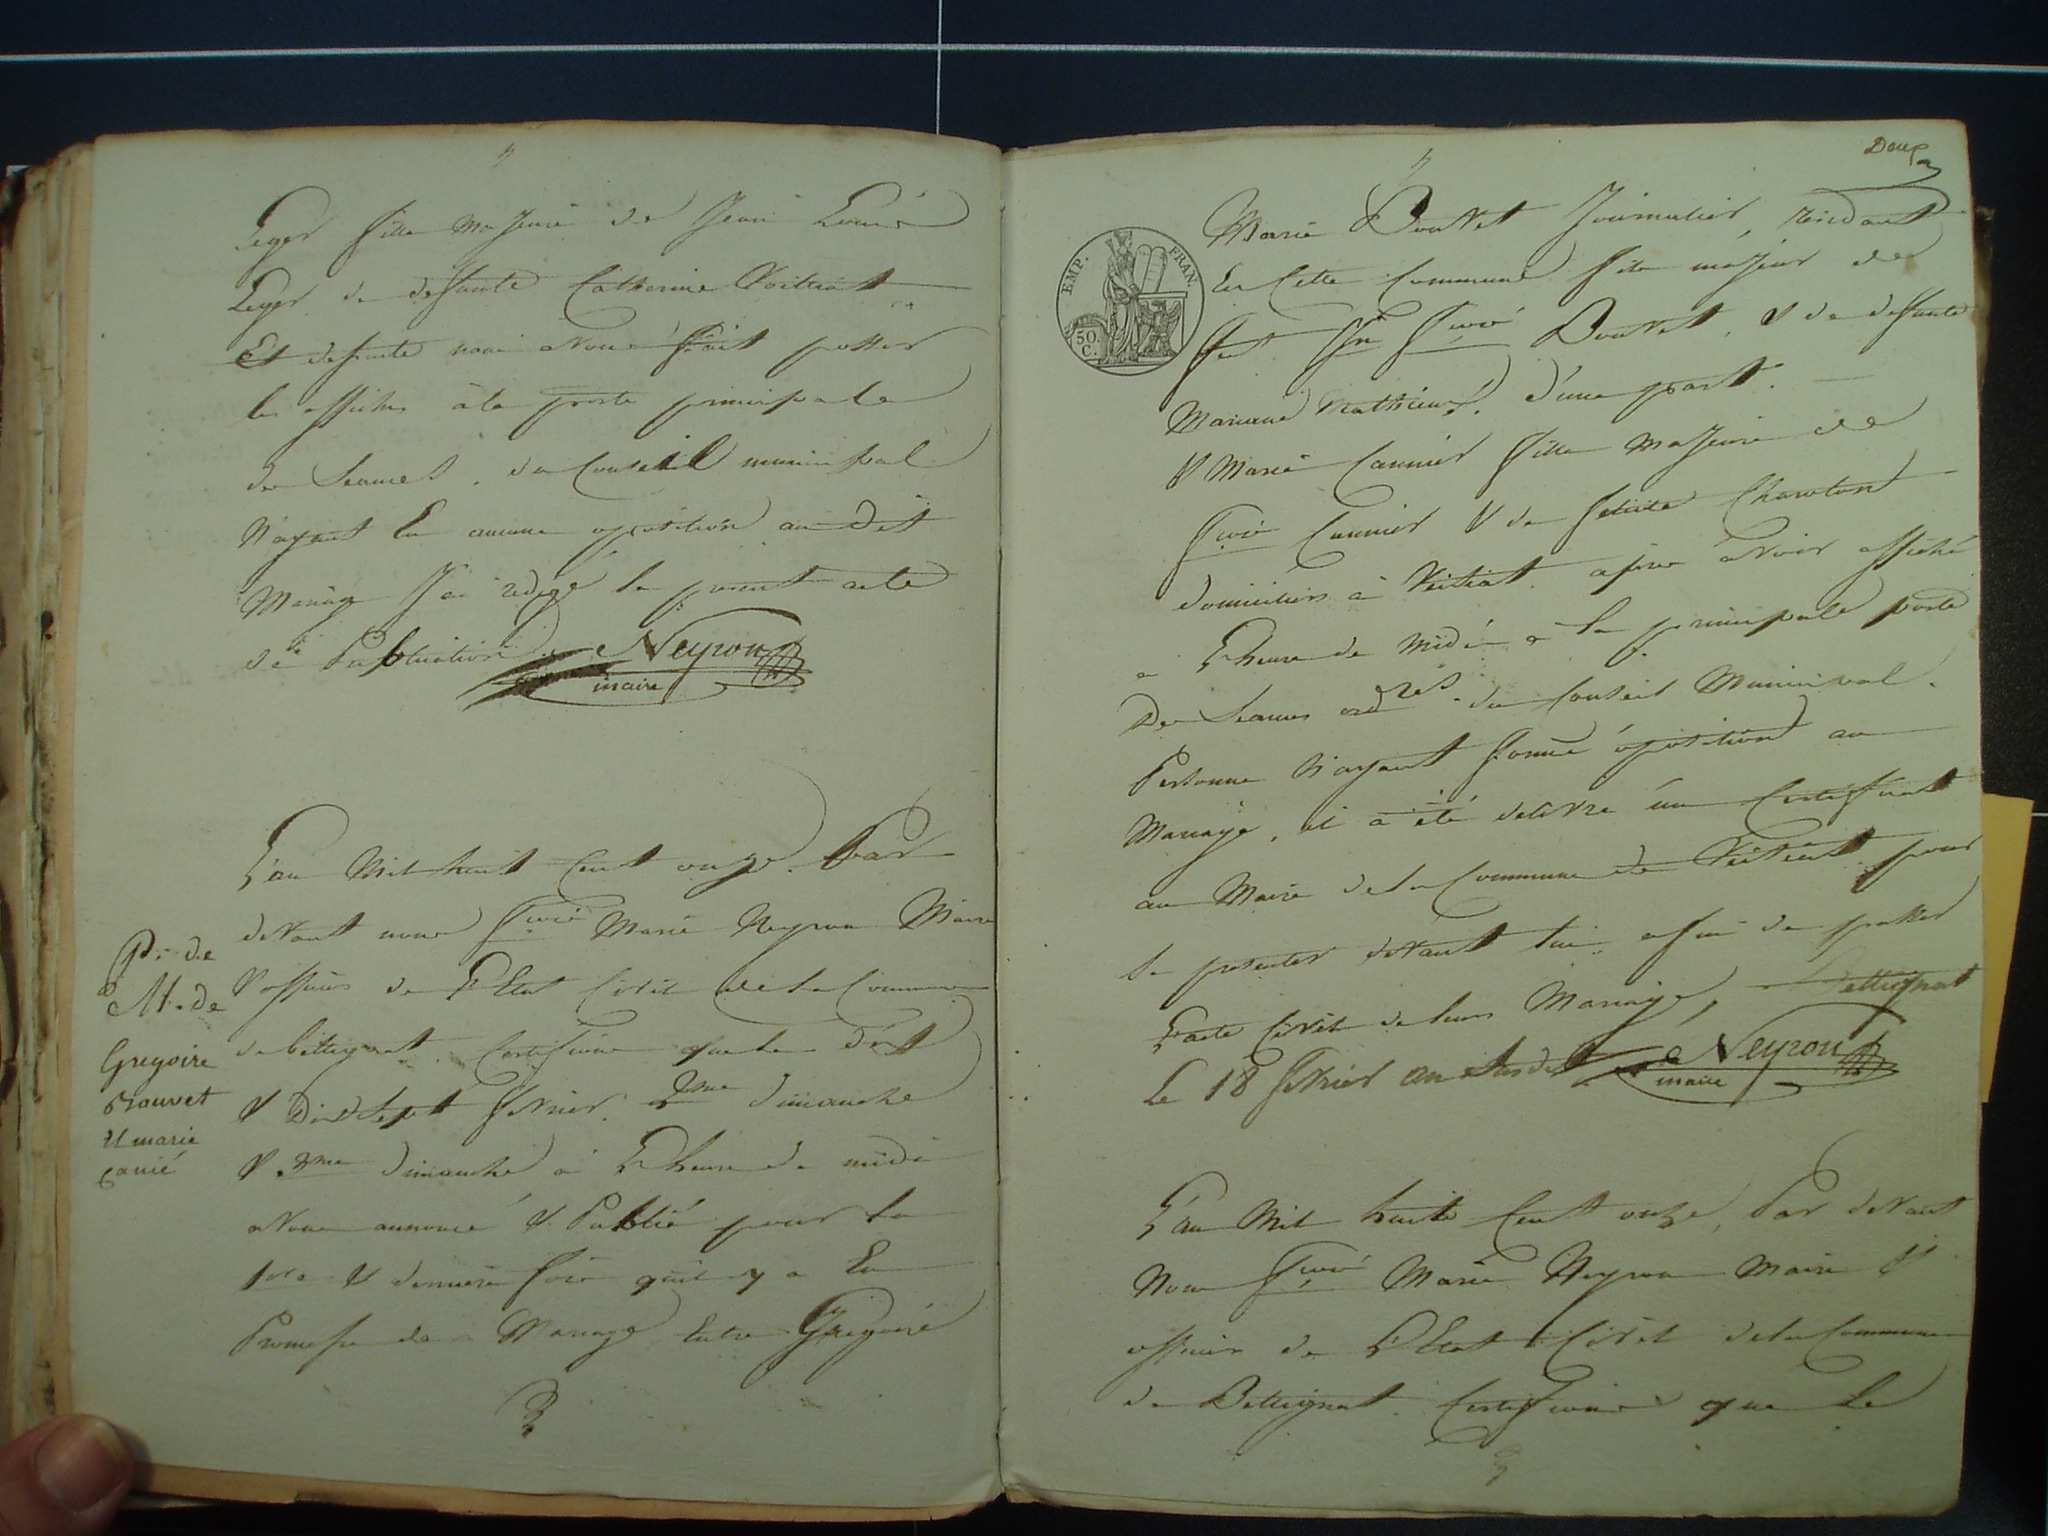 Leger fille majeure de Jean Louis
Leger de defunte Catherine Voitiat
Et desuite nous avons fait poster
les affiches à la porte principale
des seances du Conseil municipal
N'ayant Eu aucune oposition au dit
Mariage J'ai rédigé le present acte
de Publication. Neyron
maire
L'an Mil huit Cent onze. Par
devant nous Fçois Marie Neyron Maire
& officier de l'Etat Civil de la Commune
de bettignat. Certifions que le dix
& Dix Sept fevrier 2me dimanche
& 3me dimanche à l'heure de midi
avons annoncé & Publié pour la
1re & derniere fois qu'il y a Eu
Promesse de Mariage Entre Grégoire
P. de
M. de
Gregoire
Bouvet
& marie
Canié
Doux
EMP. FRAN.
50.
C.
Marie Bouvet Journalier, residant
En Cette Commune fils majeur de
feu Fçois Bouvet, & de defunte
Marianne Mathieu, d'une part.
& Marie Cannier fille Majeure de
Fçois Cannier & de felicite Charetant
domiciliés à Veitiat. apres avoir affiché
a l'heure de Midi a la principale porte
Des Seances ordres du Conseil Municipal.
Personne N'ayant formé oposition au
Mariage, il a été delivré un Certificat
au Maire de la Commune de Veitiat pour
se presenter devant lui afin de passer
l'acte Civil de leurs Mariage, Bettignat
Le 18 fevrier an susdit Neyron
maire
L'an Mil huit Cent onze, Par devant
Nous Fçois Marie Neyron Maire &
officier de l'Etat Civil de la Commune
de Bettignat. Certifions que Le